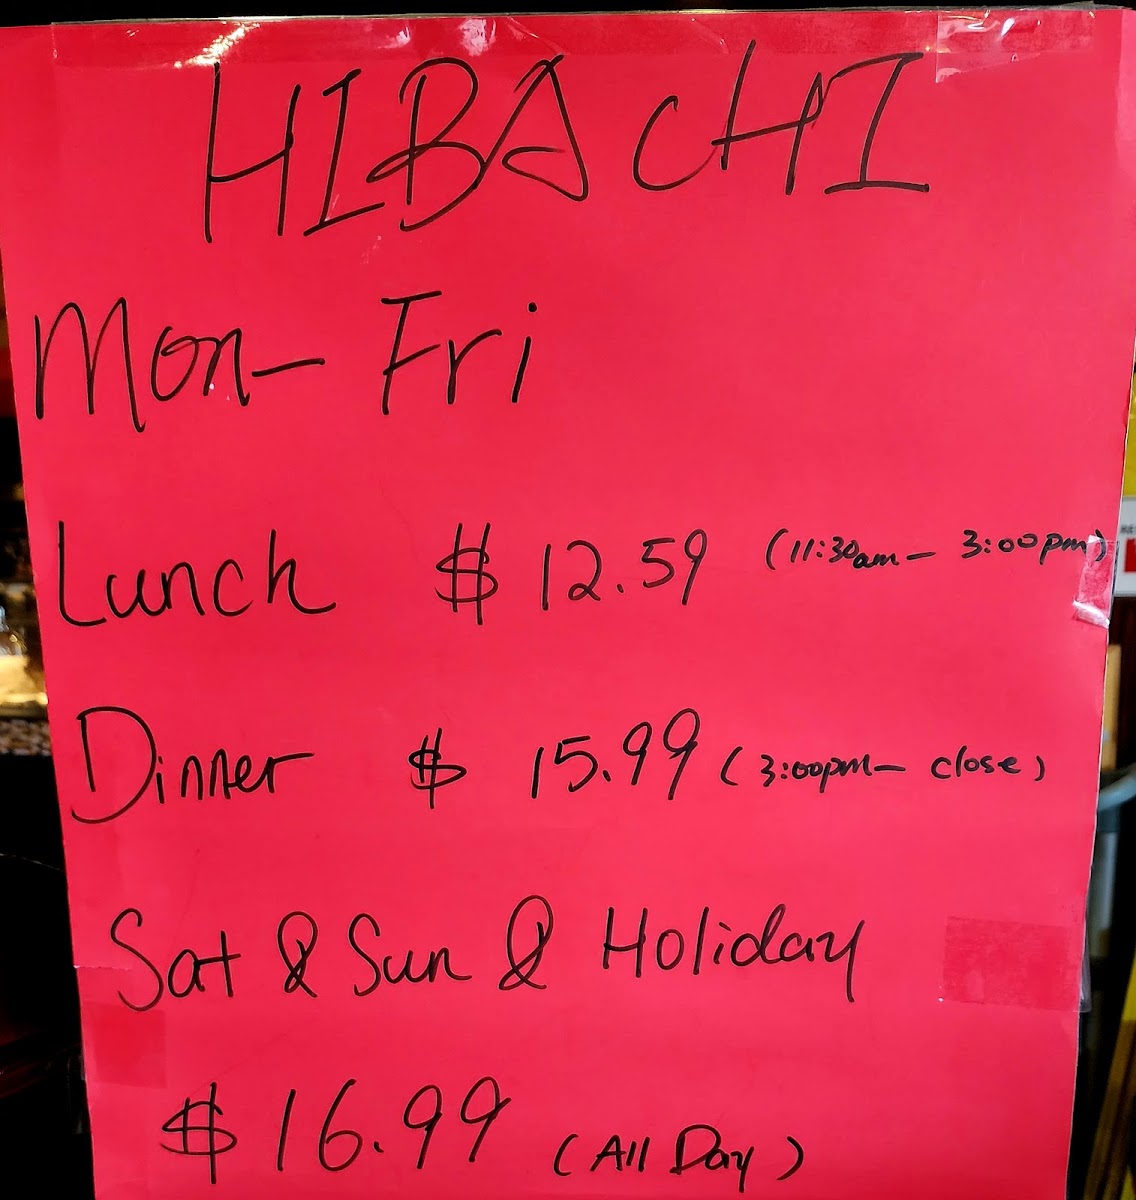 HIBACHI
Mon- Fri
Lunch $ 12.59 (11:30am - 3:00pm)
Dinner $ 15.99 (3:00pm- close)
Sat & Sun & Holiday
$ 16.99 (All Day)